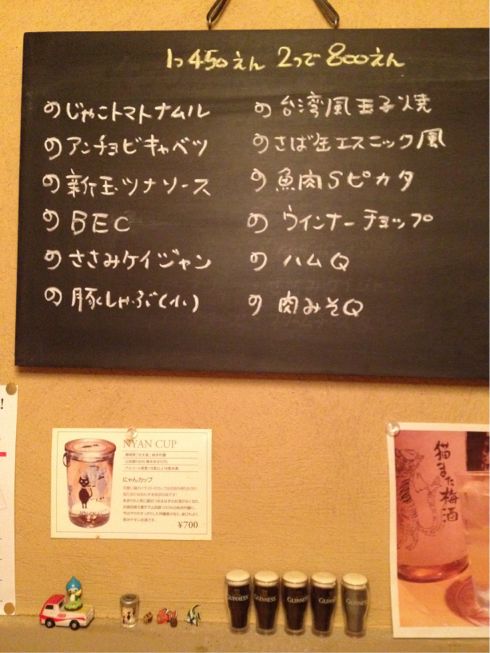 1つ450えん 2つで800えん
のじゃこトマトナムル
のアンチョビキャベツ
の新玉ツナソース
のBEC
のささみケイジャン
の豚しゃぶ(小)
の台湾風玉子焼
のさば缶エスニック風
の魚肉Sピカタ
のウインナーチョップ
のハムQ
の肉みそQ
NYAN CUP
にゃんカップ
¥700
猫また梅酒
GUINNESS
GUINNESS
GUINNESS
GUINNESS